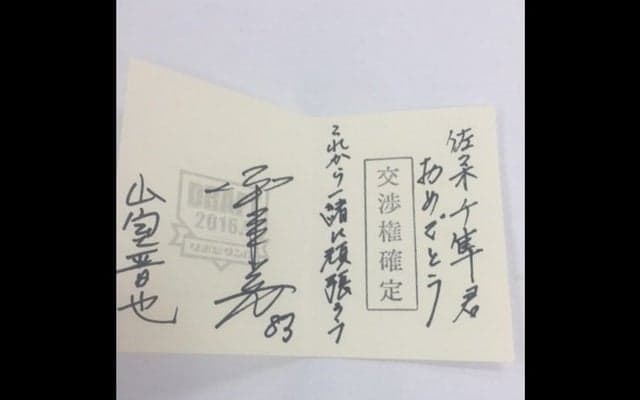 佐々木千隼君
おめでとう
交渉権確定
これから一緒に頑張ろう
DRA
2016
83
山室晋也